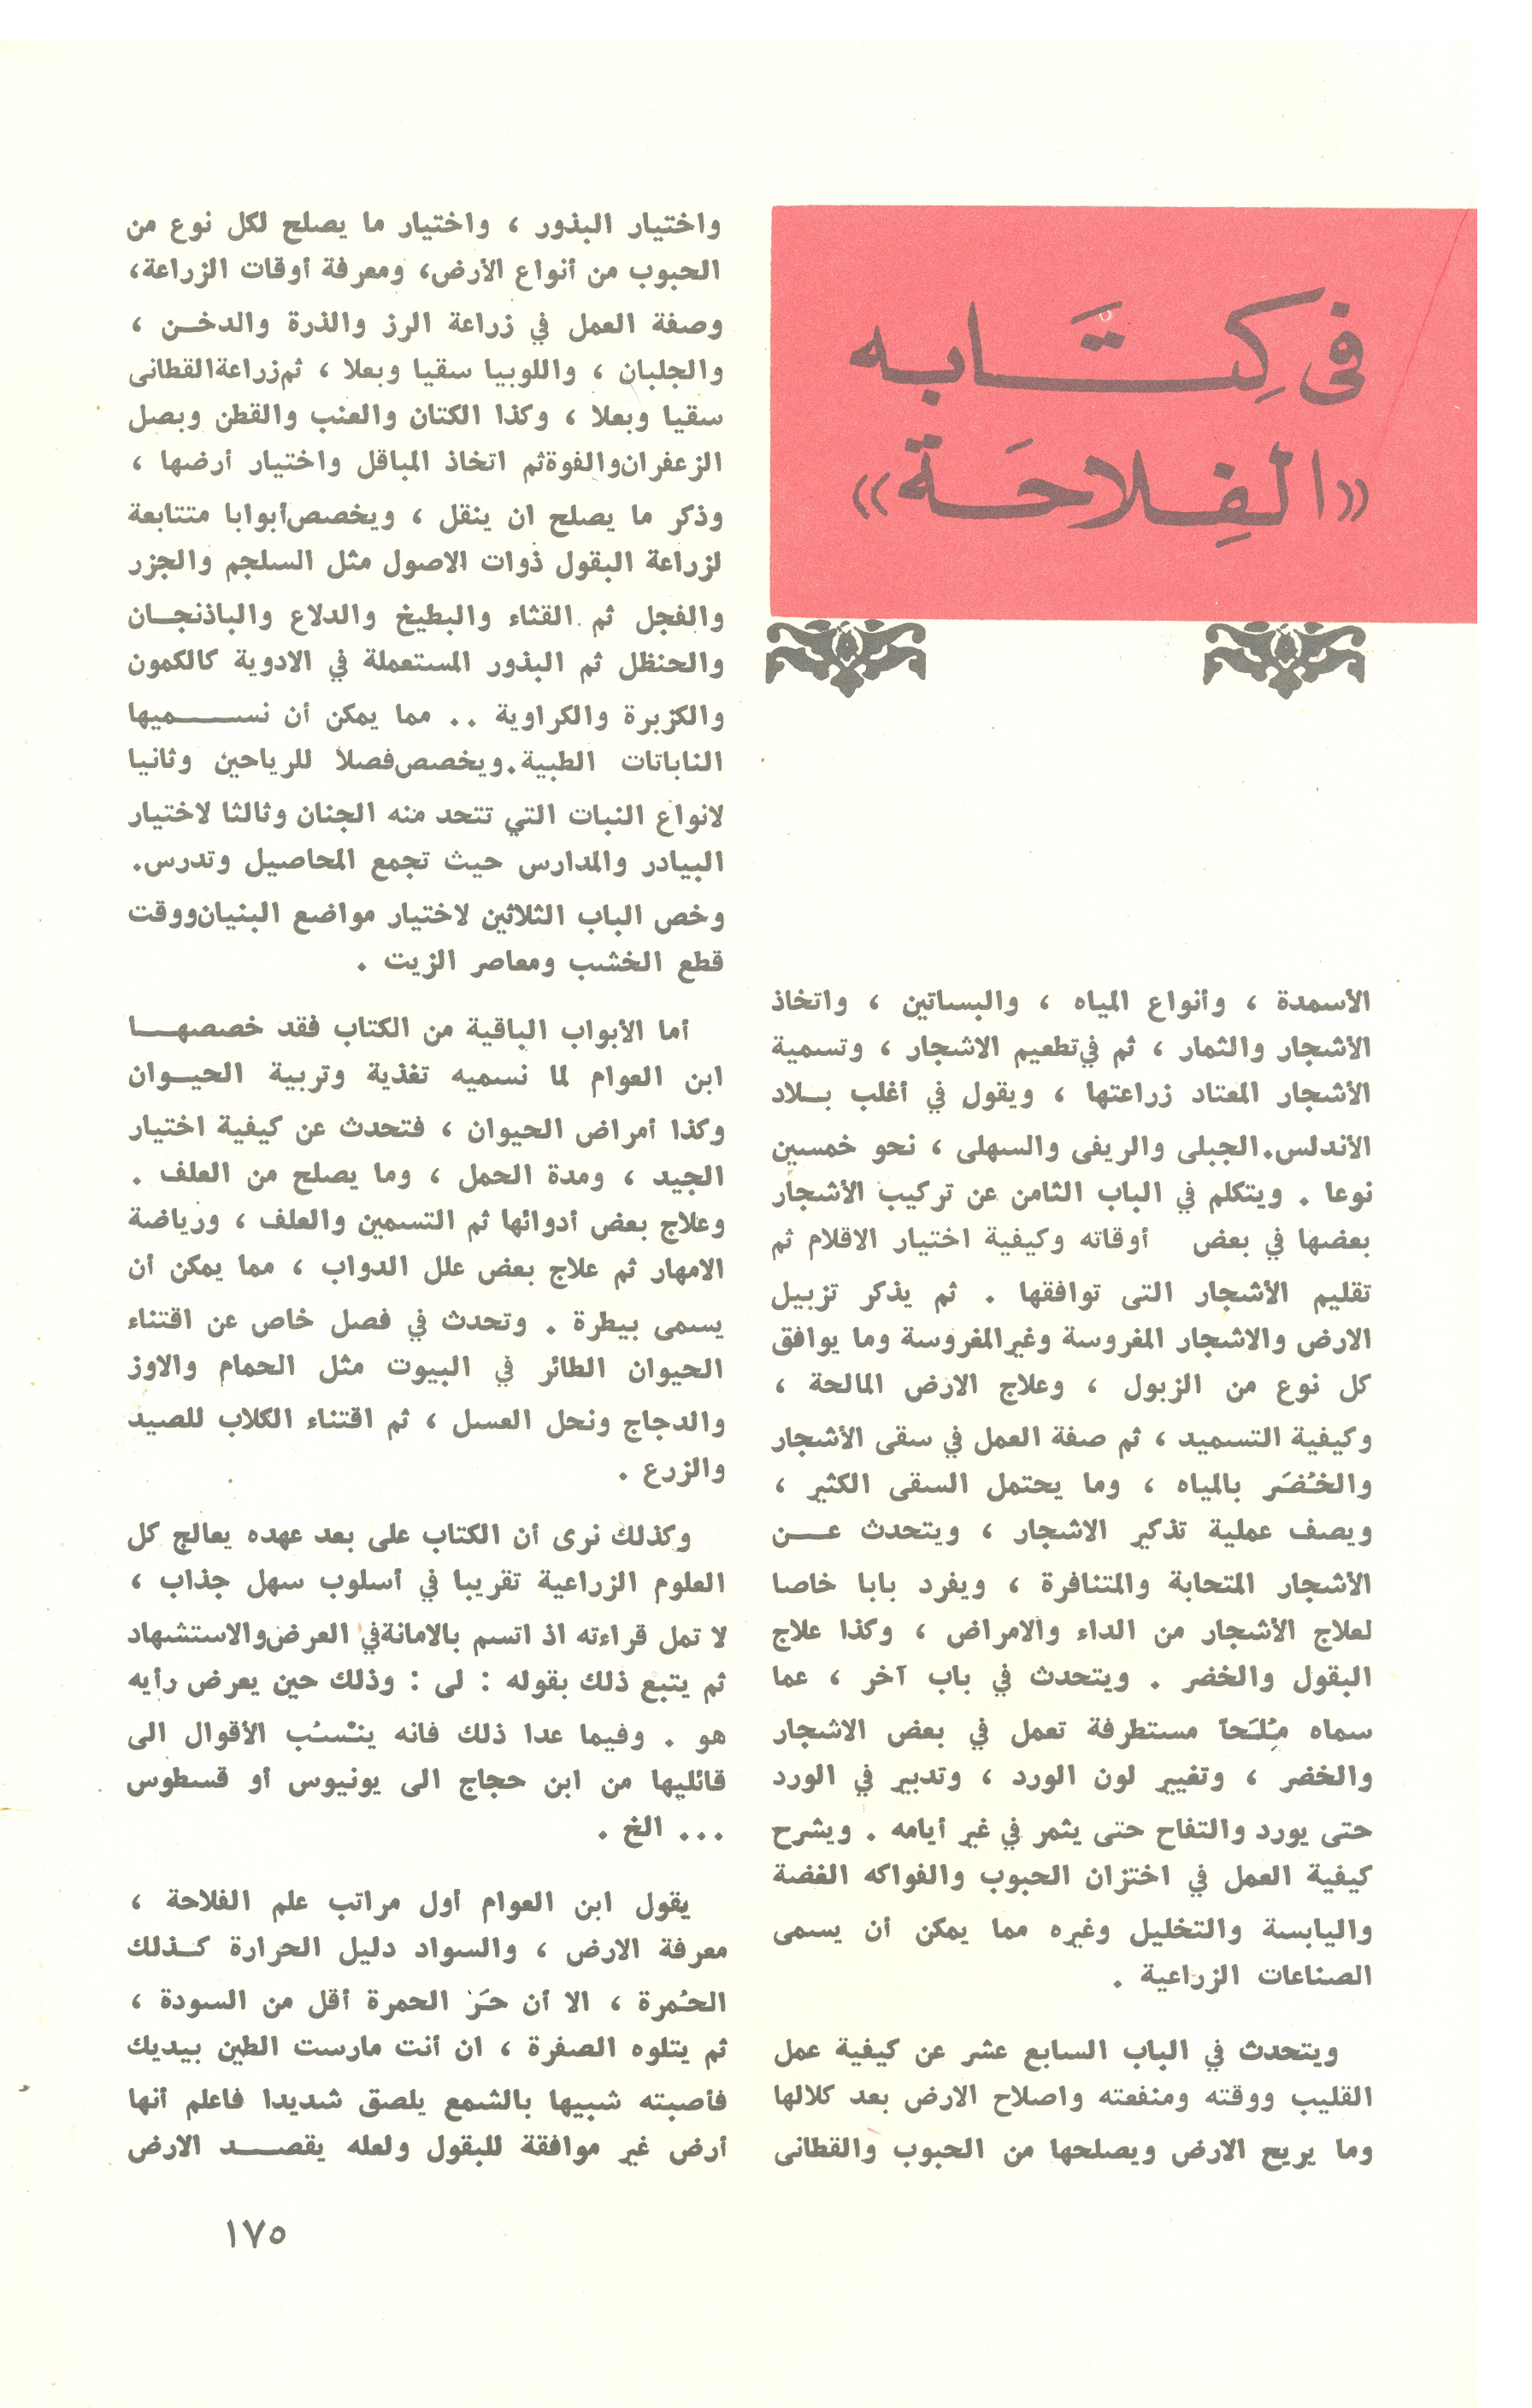 فى كِتَابه
«الفِلاحَة»
الأسمدة ، وأنواع المياه ، والبساتين ، واتخاذ
الأشجار والثمار ، ثم في تطعيم الاشجار ، وتسمية
الأشجار المعتاد زراعتها ، ويقول في أغلب بلاد
الأندلس. الجبلى والريفى والسهلى ، نحو خمسين
نوعا . ويتكلم في الباب الثامن عن تركيب الأشجار
بعضها في بعض أوقاته وكيفية اختيار الاقلام ثم
تقليم الأشجار التى توافقها . ثم يذكر تزبيل
الارض والاشجار المغروسة وغير المغروسة وما يوافق
كل نوع من الزبول ، وعلاج الارض المالحة ،
وكيفية التسميد ، ثم صفة العمل في سقى الأشجار
والخُضَر بالمياه ، وما يحتمل السقى الكثير ،
ويصف عملية تذكير الاشجار ، ويتحدث عن
الأشجار المتحابة والمتنافرة ، ويفرد بابا خاصا
لعلاج الأشجار من الداء والامراض ، وكذا علاج
البقول والخضر . ويتحدث في باب آخر ، عما
سماه مُلَحاً مستطرفة تعمل في بعض الاشجار
والخضر ، وتغيير لون الورد ، وتدبير في الورد
حتى يورد والتفاح حتى يثمر في غير أيامه . ويشرح
كيفية العمل في اختزان الحبوب والفواكه الغضة
واليابسة والتخليل وغيره مما يمكن أن يسمى
الصناعات الزراعية .
ويتحدث في الباب السابع عشر عن كيفية عمل
القليب ووقته ومنفعته واصلاح الارض بعد كلالها
وما يريح الارض ويصلحها من الحبوب والقطانى
واختيار البذور ، واختيار ما يصلح لكل نوع من
الحبوب من أنواع الأرض، ومعرفة أوقات الزراعة،
وصفة العمل في زراعة الرز والذرة والدخن ،
والجلبان ، واللوبيا سقيا وبعلا ، ثم زراعة القطانى
سقيا وبعلا ، وكذا الكتان والعنب والقطن وبصل
الزعفران والفوة ثم اتخاذ المباقل واختيار أرضها ،
وذكر ما يصلح ان ينقل ، ويخصص أبوابا متتابعة
لزراعة البقول ذوات الاصول مثل السلجم والجزر
والفجل ثم القثاء والبطيخ والدلاع والباذنجان
والحنظل ثم البذور المستعملة في الادوية كالكمون
والكزبرة والكراوية .. مما يمكن أن نسميها
الناباتات الطبية. ويخصص فصلا للرياحين وثانيا
لانواع النبات التي تتحد منه الجنان وثالثا لاختيار
البيادر والمدارس حيث تجمع المحاصيل وتدرس.
وخص الباب الثلاثين لاختيار مواضع البنيان ووقت
قطع الخشب ومعاصر الزيت .
أما الأبواب الباقية من الكتاب فقد خصصها
ابن العوام لما نسميه تغذية وتربية الحيوان
وكذا أمراض الحيوان ، فتحدث عن كيفية اختيار
الجيد ، ومدة الحمل ، وما يصلح من العلف .
وعلاج بعض أدوائها ثم التسمين والعلف ، ورياضة
الامهار ثم علاج بعض علل الدواب ، مما يمكن أن
يسمى بيطرة . وتحدث في فصل خاص عن اقتناء
الحيوان الطائر في البيوت مثل الحمام والاوز
والدجاج ونحل العسل ، ثم اقتناء الكلاب للصيد
والزرع .
وكذلك نرى أن الكتاب على بعد عهده يعالج كل
العلوم الزراعية تقريبا في أسلوب سهل جذاب ،
لا تمل قراءته اذ اتسم بالامانة في العرض والاستشهاد
ثم يتبع ذلك بقوله : لى : وذلك حين يعرض رأيه
هو . وفيما عدا ذلك فانه ينْسُب الأقوال الى
قائليها من ابن حجاج الى يونيوس أو قسطوس
... الخ .
يقول ابن العوام أول مراتب علم الفلاحة ،
معرفة الارض ، والسواد دليل الحرارة كذلك
الحُمرة ، الا أن حَرّ الحمرة أقل من السودة ،
ثم يتلوه الصفرة ، ان أنت مارست الطين بيديك
فأصبته شبيها بالشمع يلصق شديدا فاعلم أنها
أرض غير موافقة للبقول ولعله يقصد الارض
١٧٥